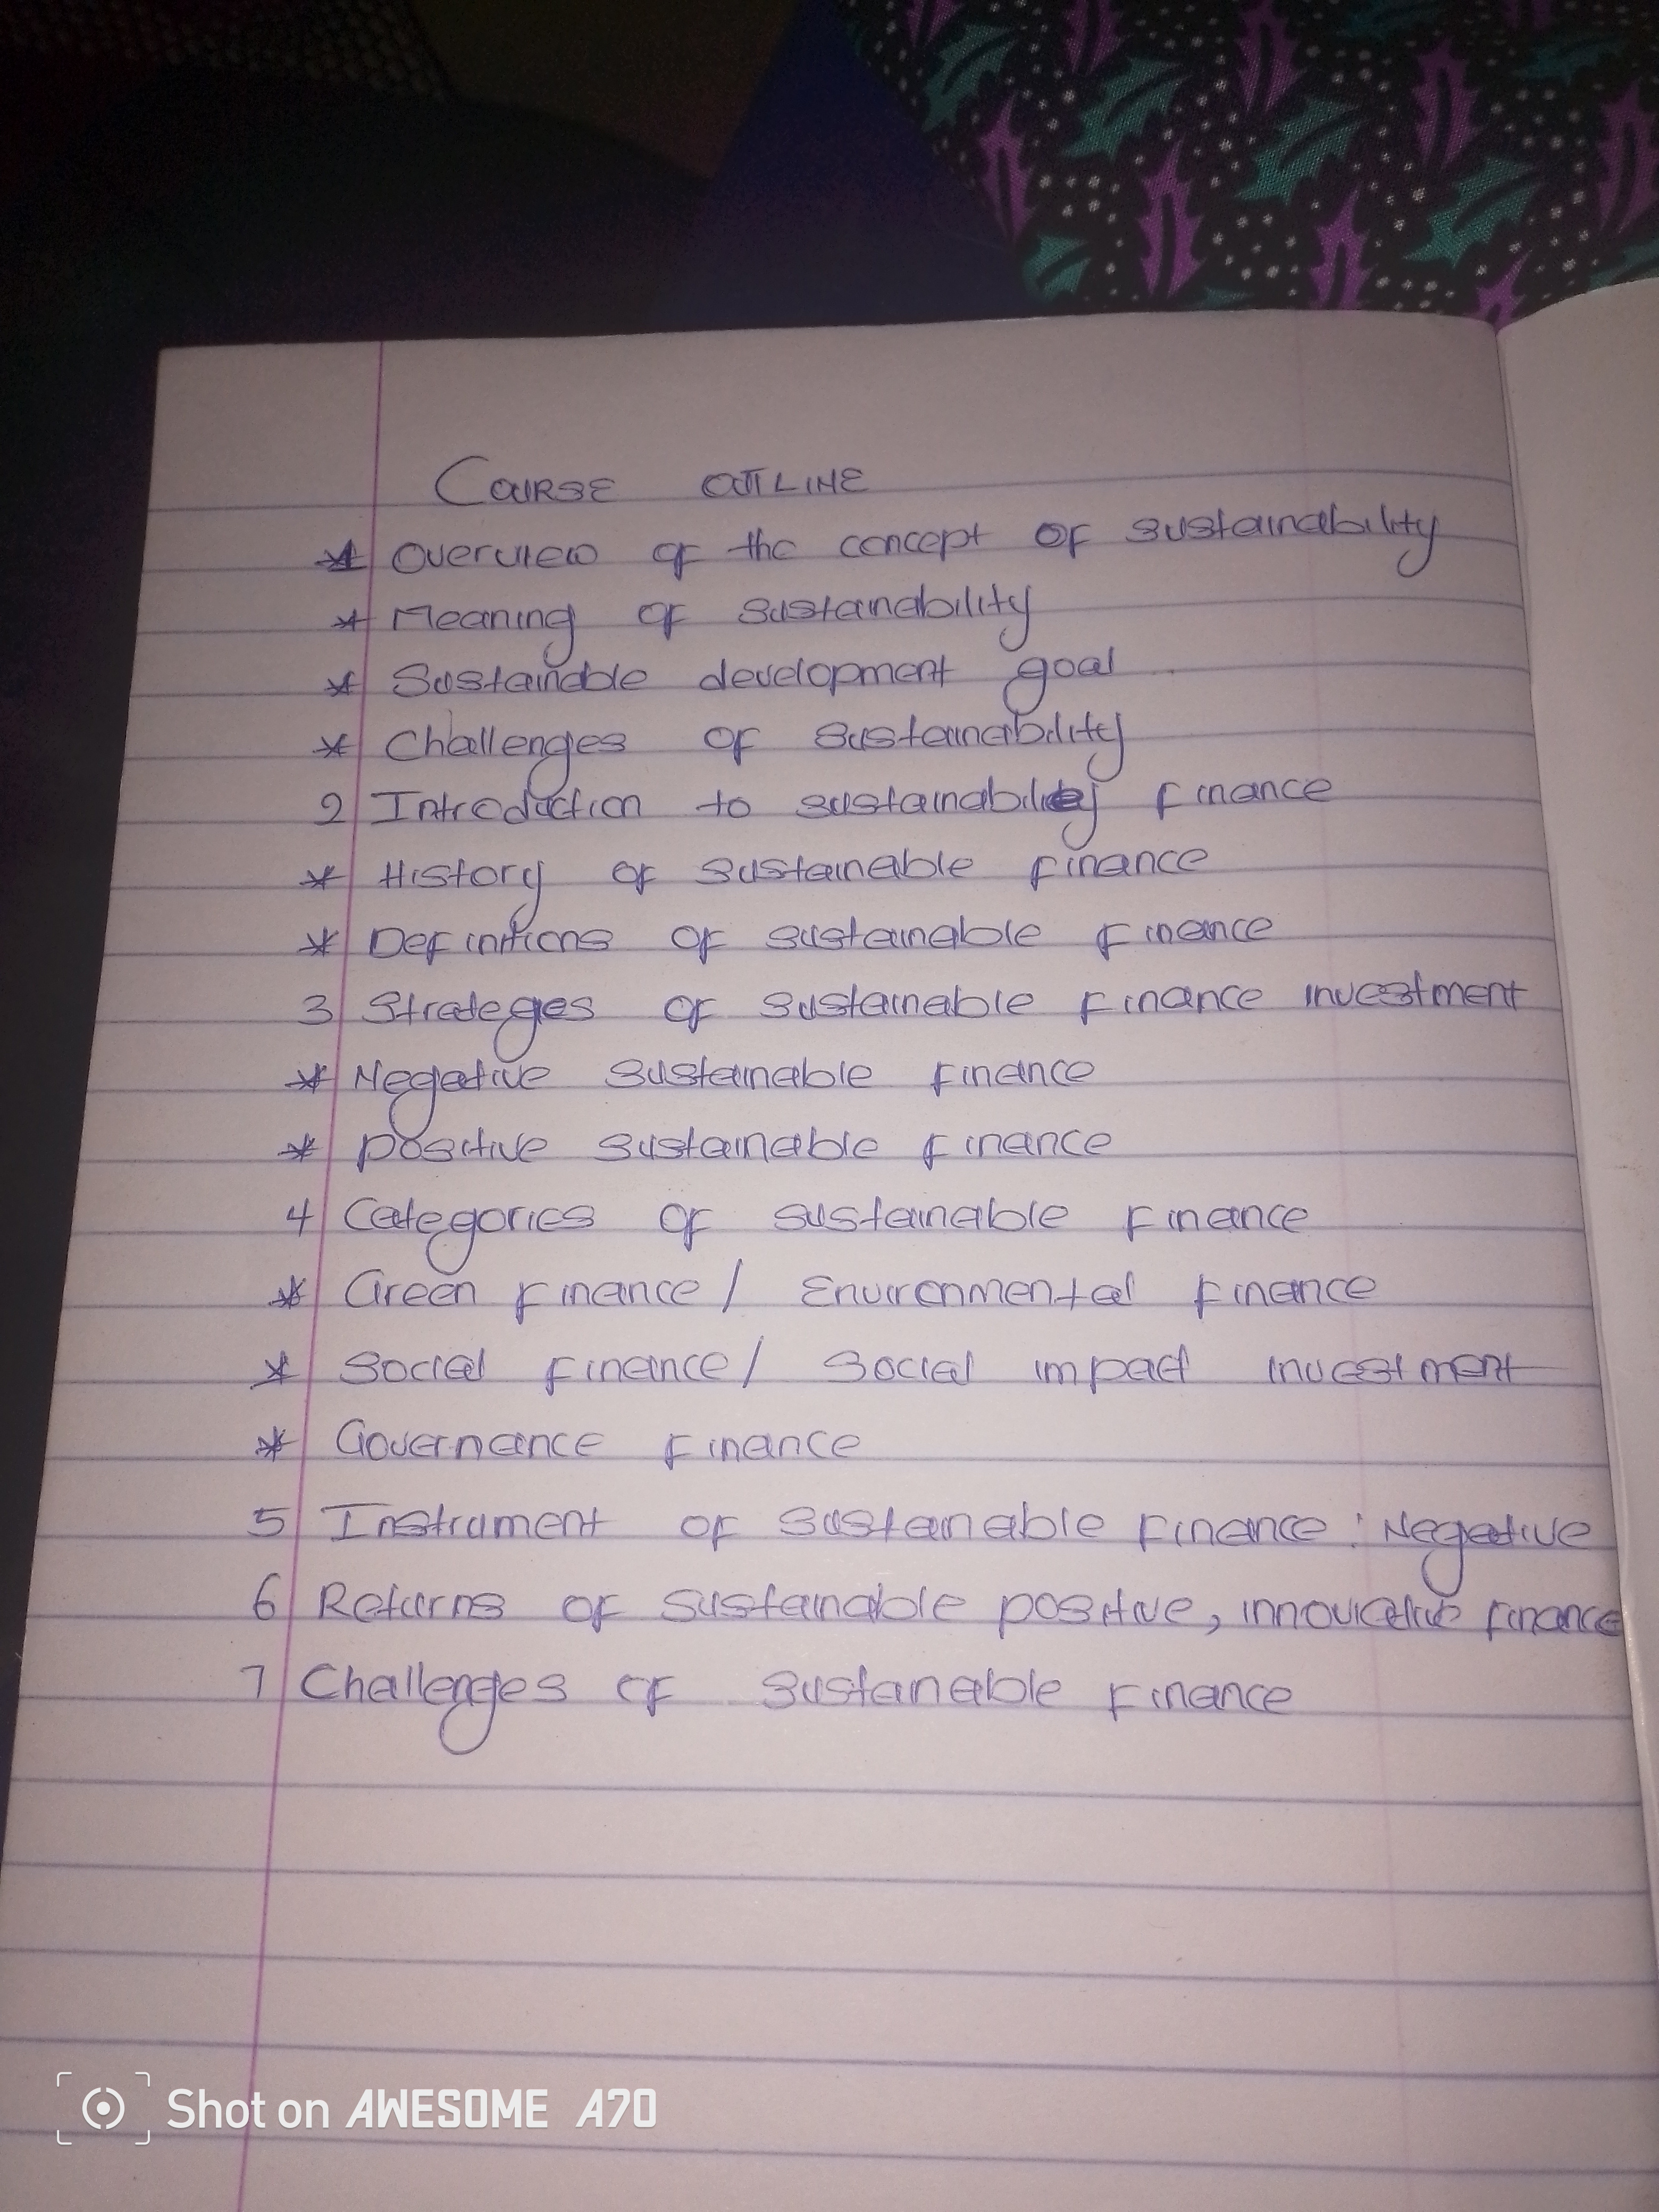 COURSE OUTLINE
* Overview of the concept of sustainability
* Meaning of sustainability
* Sustainable development goal
* Challenges of sustainability
2 Introduction to sustainability finance
* History of sustainable finance
* Definitions of sustainable finance
3 Strateges of sustainable finance investment
* Negative sustainable finance
* positive sustainable finance
4 Categories of sustainable finance
* Green finance / Environmental finance
* Social finance / Social impact investment
* Governance finance
5 Instrument of sustainable finance : Negative
6 Returns of sustainable positive, finance
7 Challenges of sustainable finance
Shot on AWESOME A70